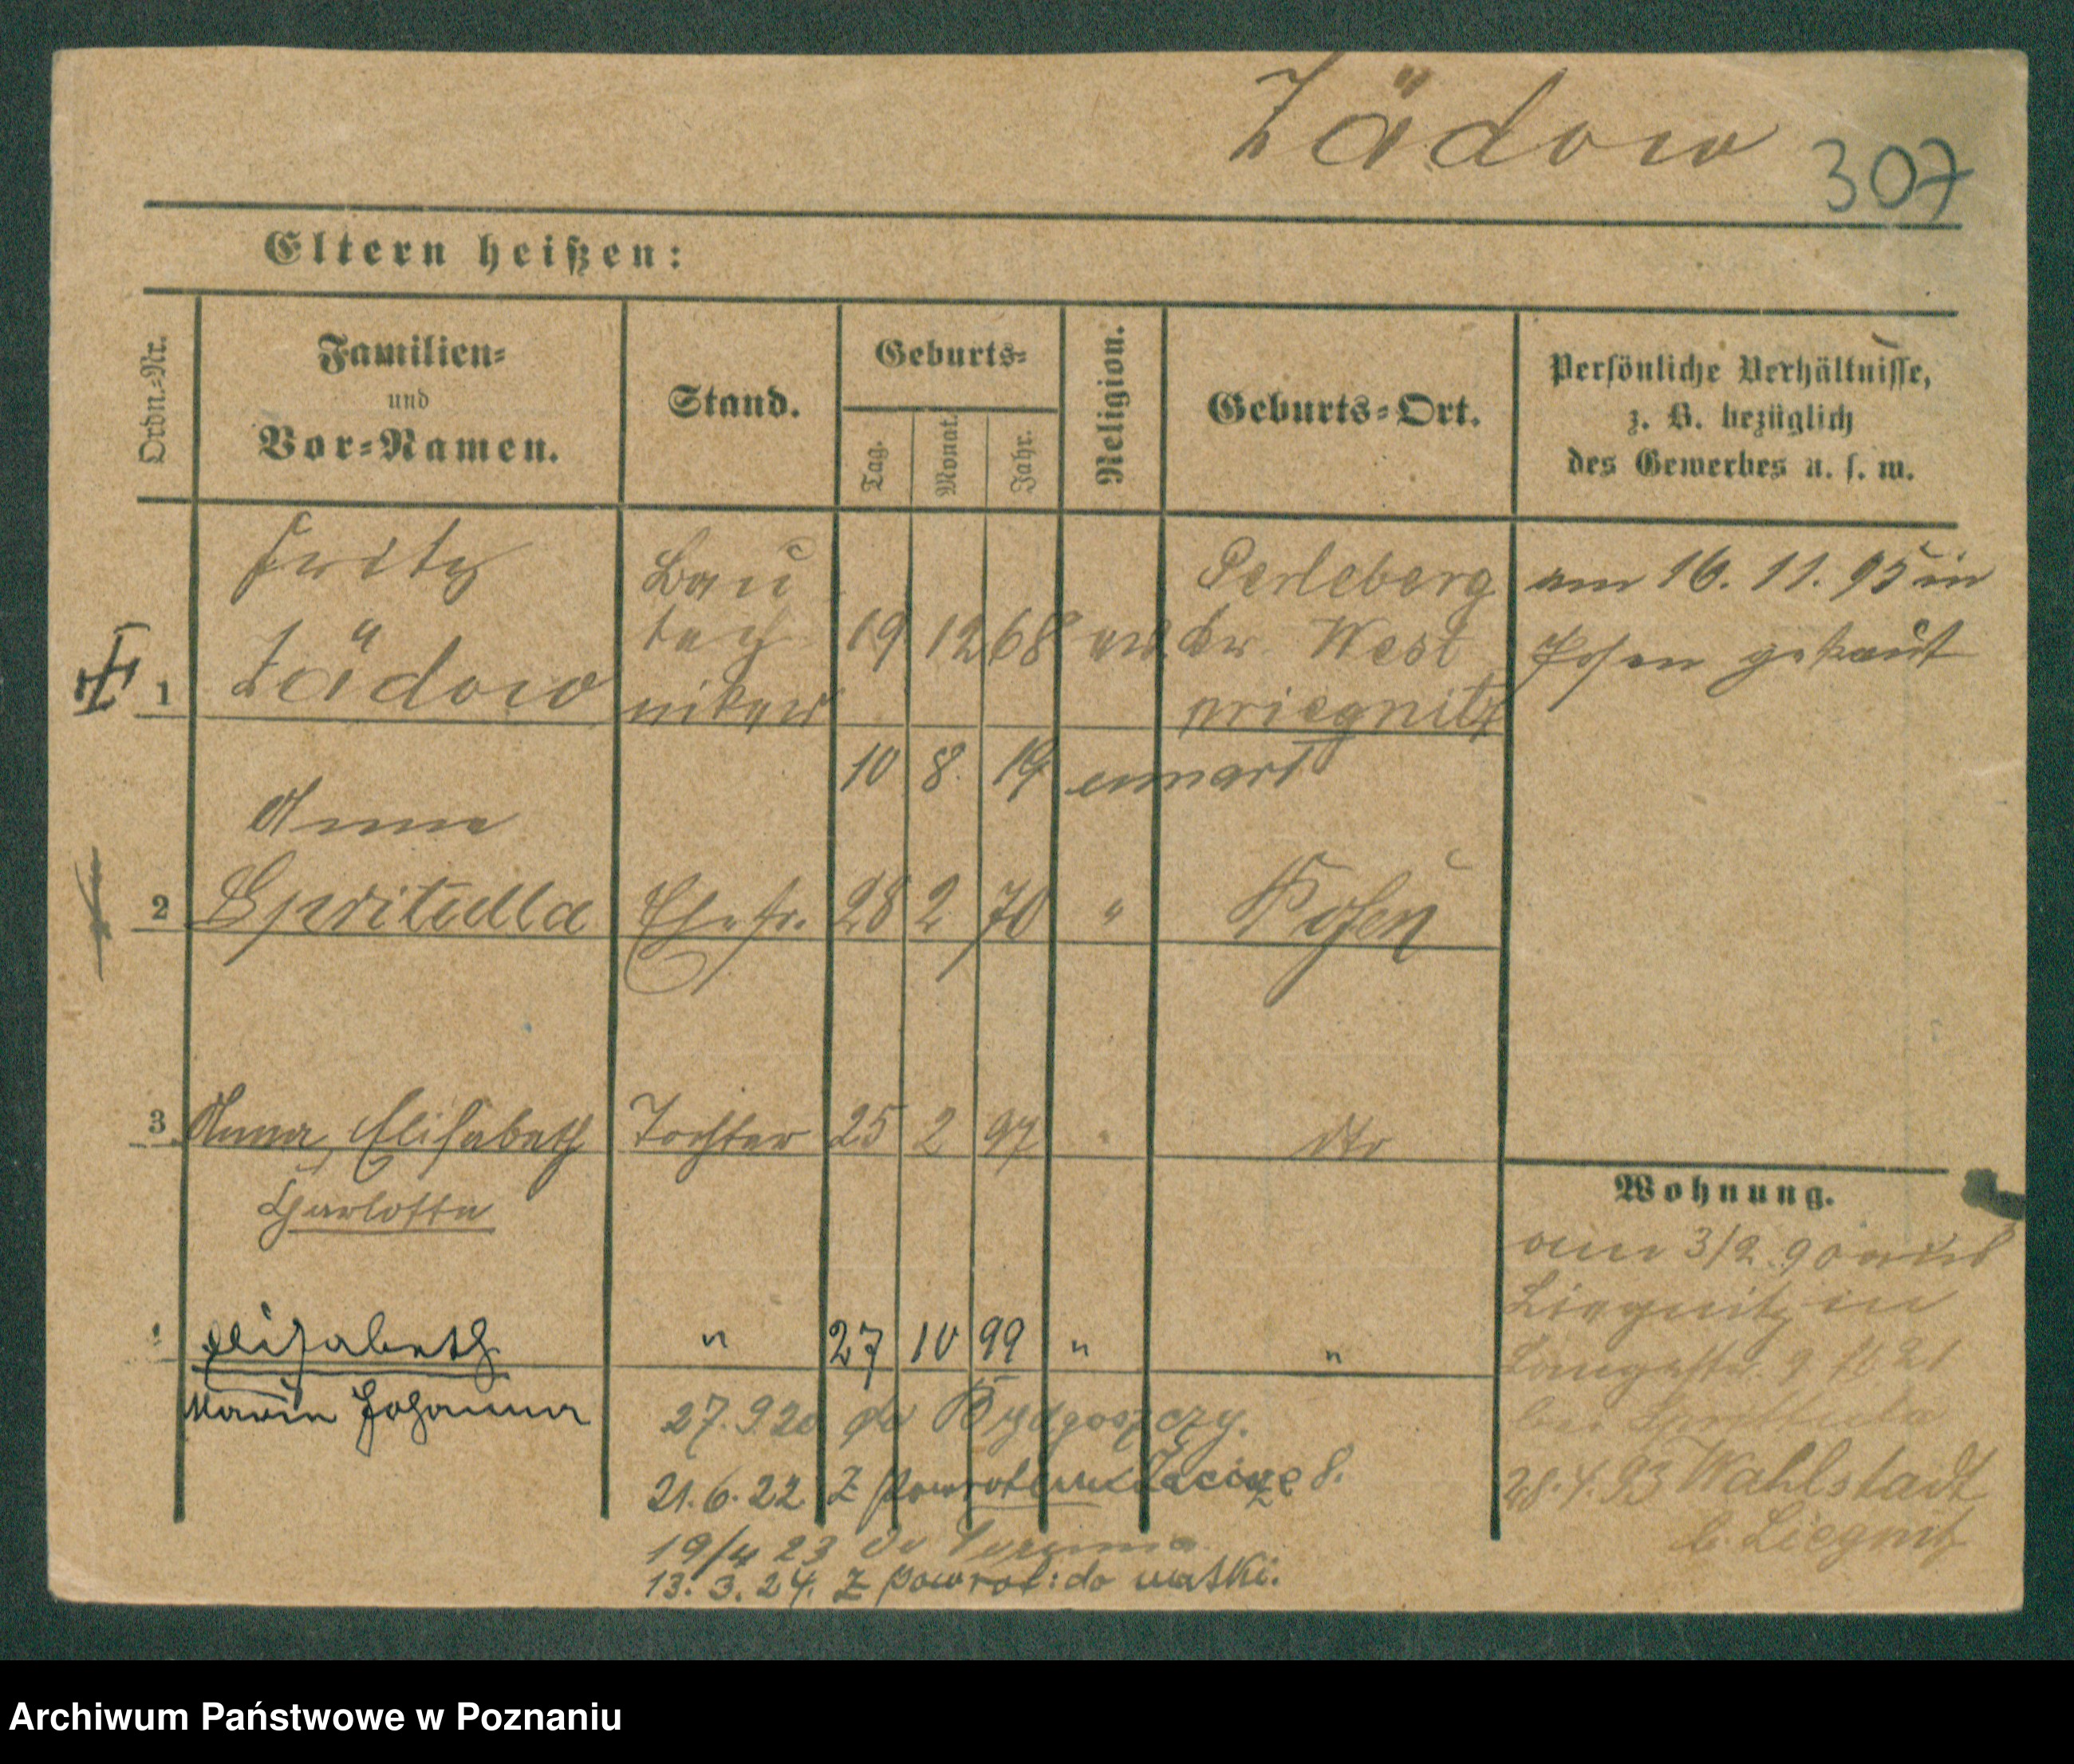 Zädow
307
Eltern heißen:
Ordn.-Nr.
Familien-
und
Vor-Namen.
Stand.
Geburts-
Tag.
Monat.
Jahr.
Religion.
Geburts-Ort.
Persönliche Verhältnisse,
z. B. bezüglich
des Gewerbes u. s. w.
1
Fritz
Zädow
Bau
tech
niker
19 12 68
ev.
Perleberg
Kr. West
priegnitz
am 16. 11. 95 in
Posen getraut
10 8. 19
2
Anna
Spritulla
Ehefr.
28 2 70
"
Posen
3
Anna, Elisabeth
Charlotte
Tochter
25 2 97
dto
Elisabeth
Marie Johanna
"
27 10 99
"
"
27.9.20 do Bydgoszczy.
21.6.22 Z powrotem 8.
19/4 23 do
13. 3. 24. Z powrot: do matki.
Wohnung.
3/2. 90 aus
Liegnitz in
Langestr. 9
bei Spritulla
28.4.93 Wahlstadt
b. Liegnitz
Archiwum Państwowe w Poznaniu